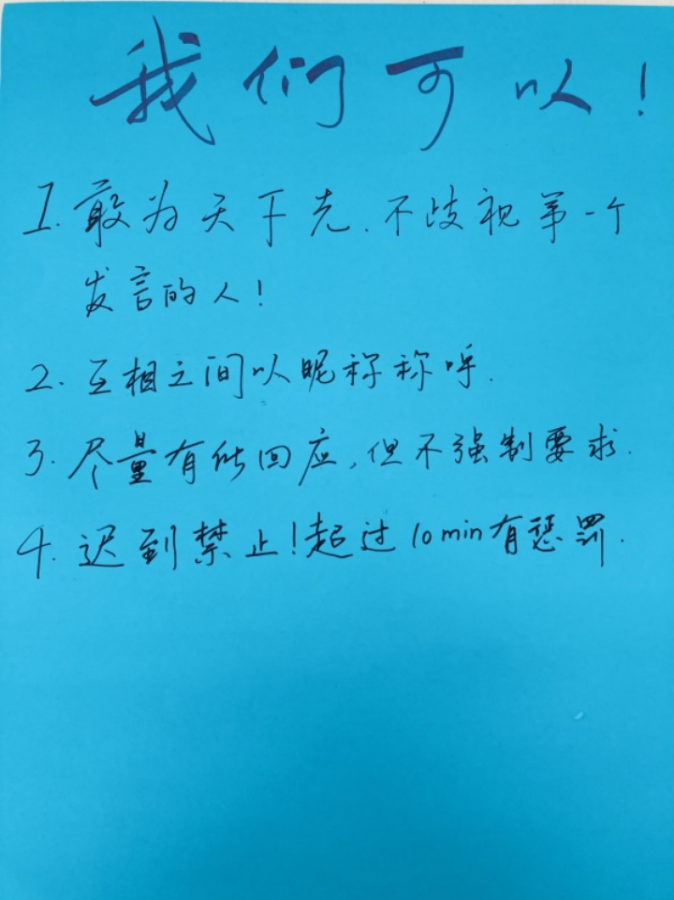 我们可以！
1. 敢为天下先.不歧视第一个
发言的人！
2. 互相之间以昵称称呼.
3. 尽量有所回应,但不强制要求.
4. 迟到禁止！超过10min有惩罚.